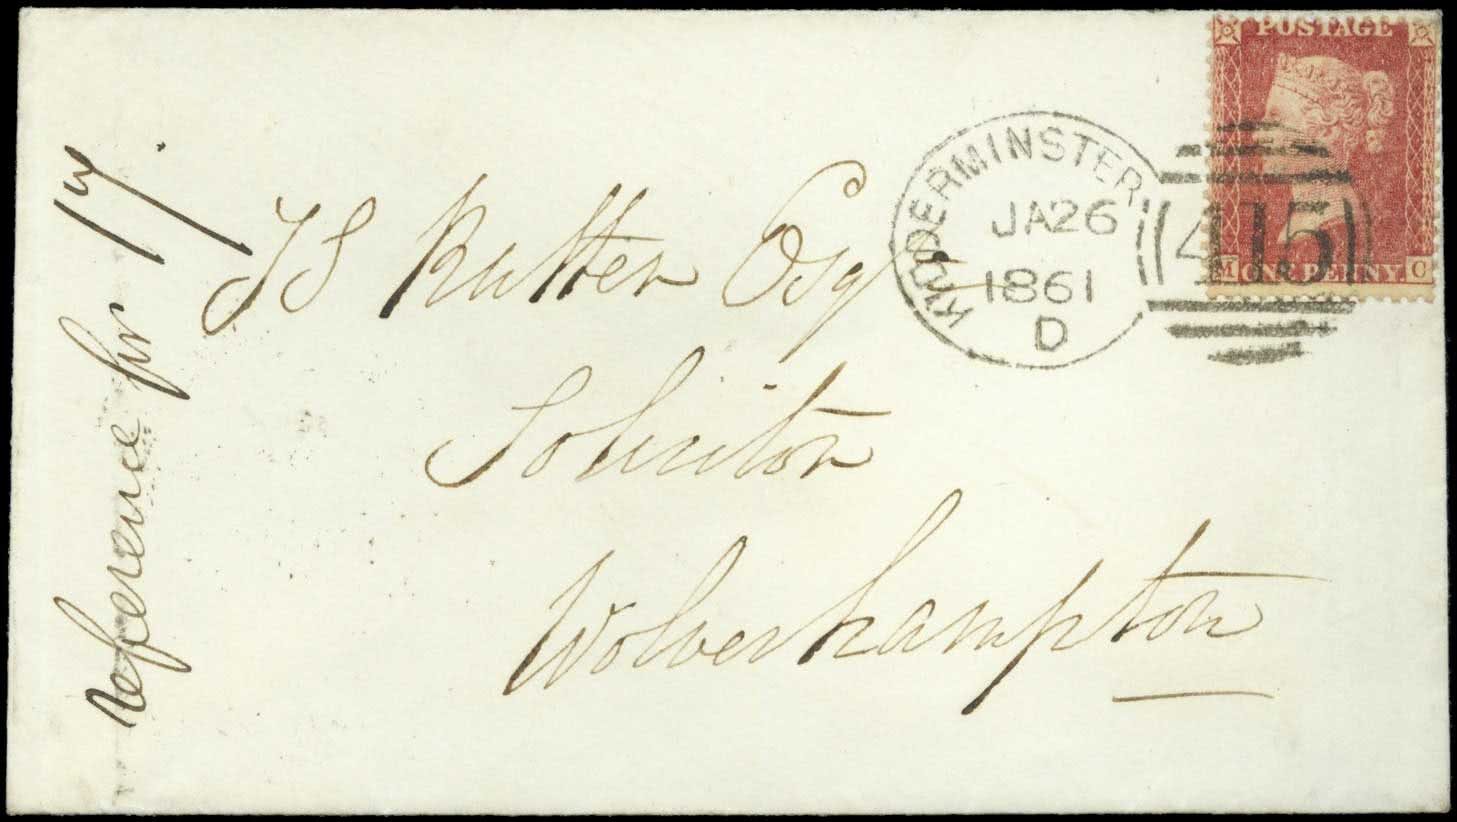 POSTAGE
M ONE PENNY C
KIDDERMINSTER
JA26
1861
D
415
Rutter Esq
Solicitor
Wolverhampton
reference for